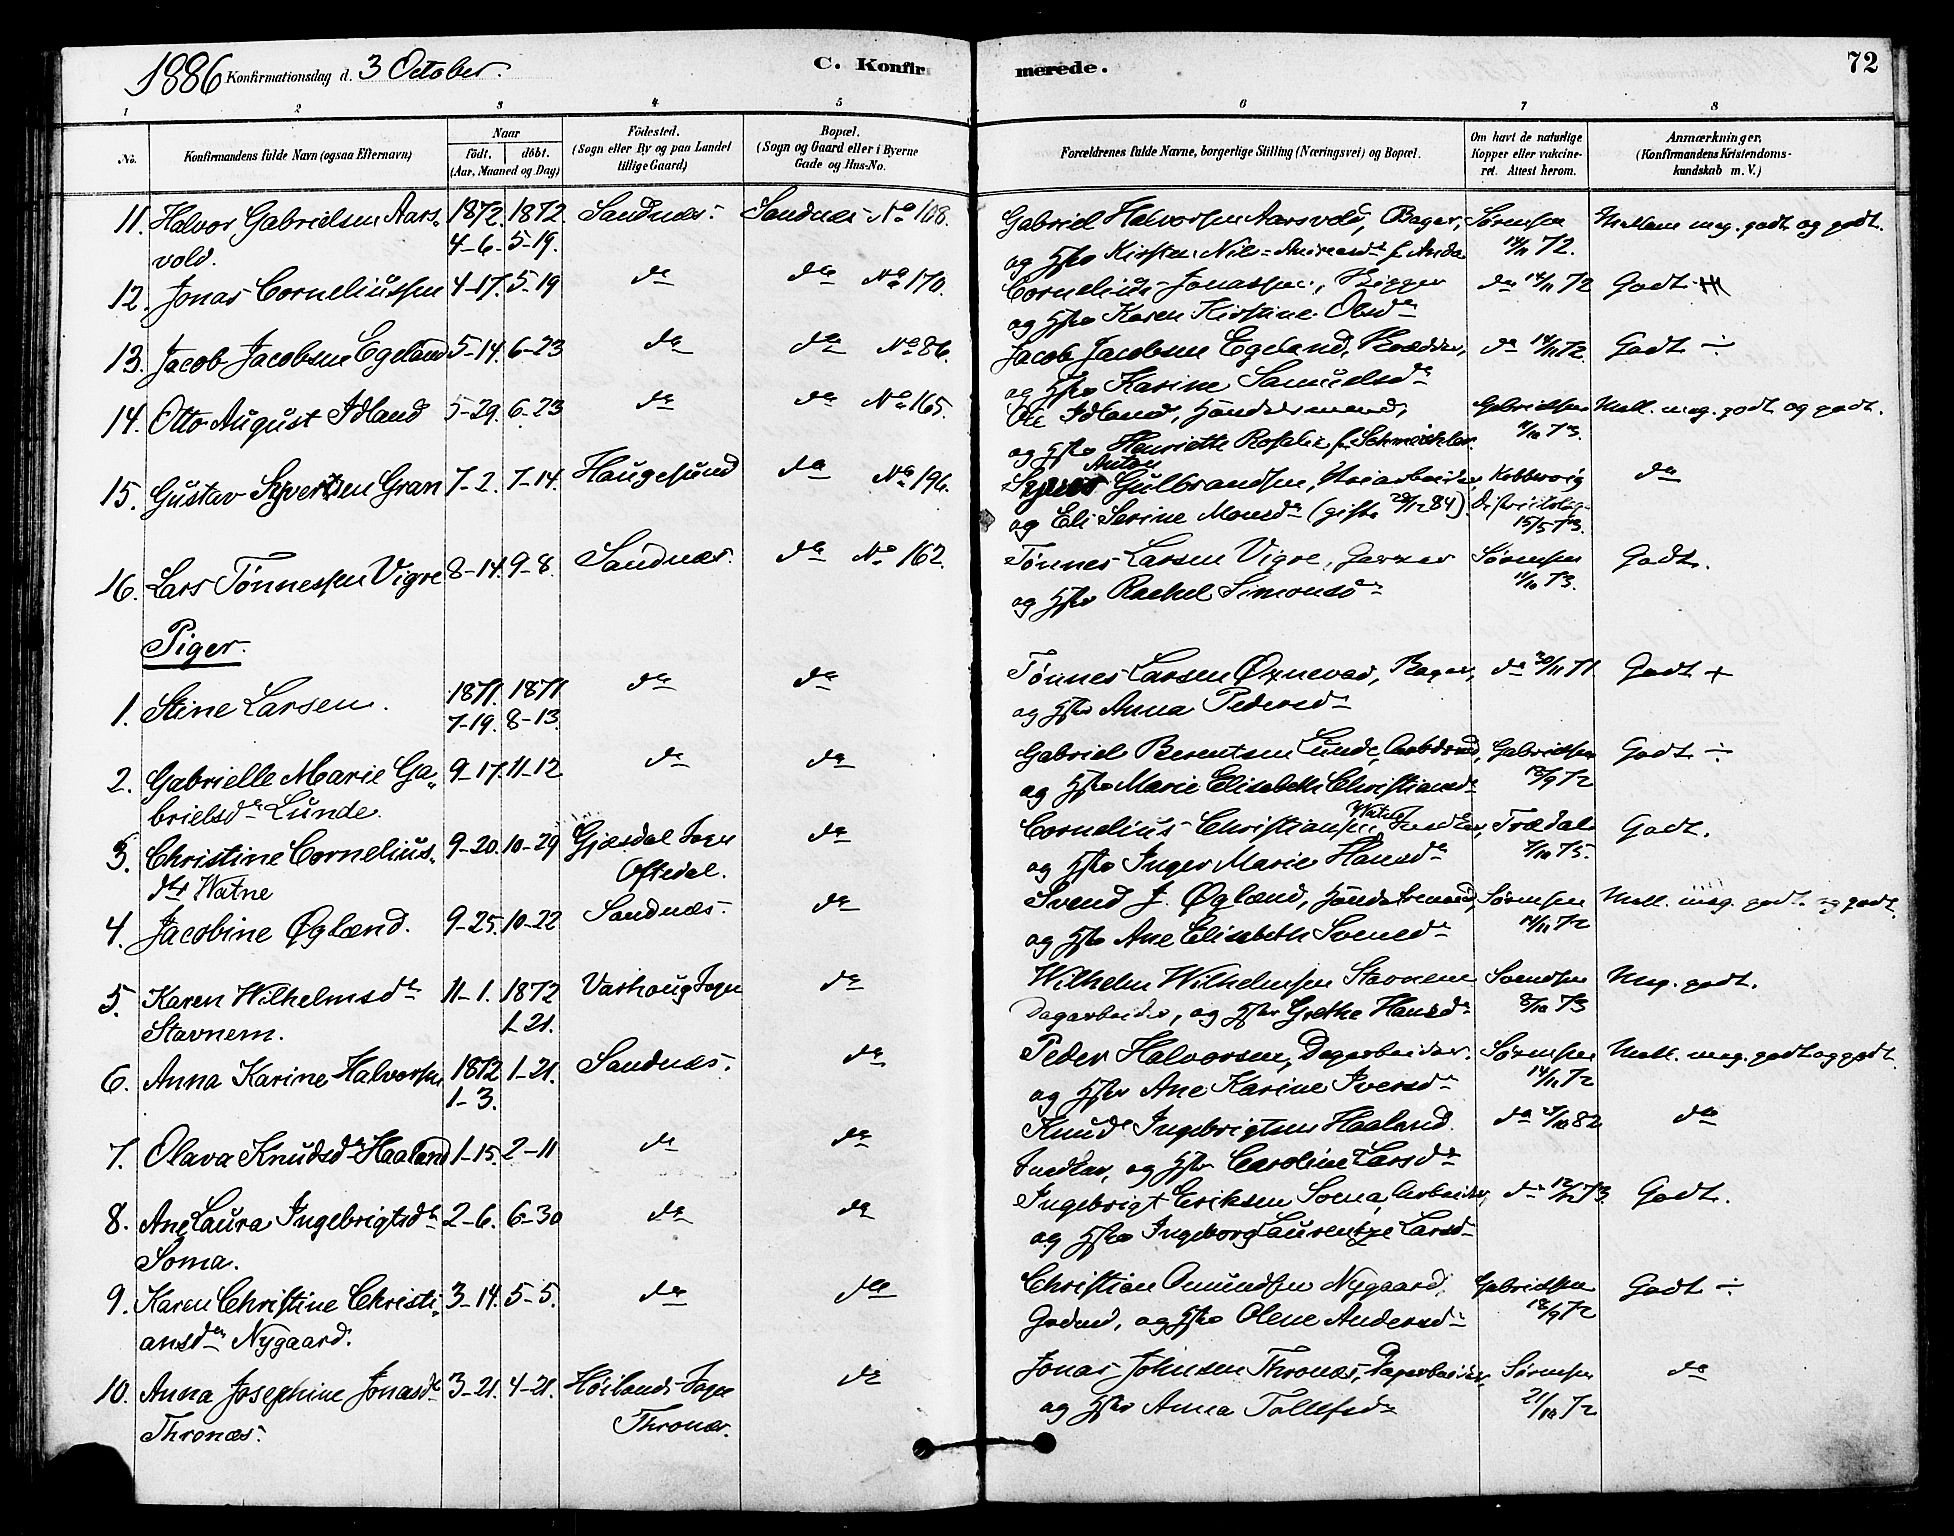 1886 Konfirmationsdag d. 3 October.
C. Konfirmerede.
72
1 2 3 4 5 6 7 8
No.
Konfirmandens fulde Navn (ogsaa Efternavn)
Naar
födt. döbt.
(Aar, Maaned og Dag)
Födested.
(Sogn eller By og paa Landet
tillige Gaard)
Bopæl.
(Sogn og Gaard eller i Byerne
Gade og Hus-No.
Forældrenes fulde Navne, borgerlige Stilling (Næringsvei) og Bopæl.
Om havt de naturlige
Kopper eller vakcine-
ret. Attest herom.
Anmærkninger,
(Konfirmandens Kristendoms-
kundskab m. V.)
11. Halvor Gabrielsen Aars- 1872. 1872 Sandnæs. Sandnæs No 108. Gabriel Halvorsen Aarsvold, Bager, Sørensen Mellem meg. godt og godt.
vold. 4-6. 5-19. og Hstr Kirsten Nils-Andreasdr f. Anda 14/11 72.
12. Jonas Corneliussen 4-17. 5-19 do do No 170. Cornelius Jonassen, Rigger do 14/11 72 Godt
og Hstr Karen Kirstine Olsdr
13. Jacob Jacobsen Egeland 5-14. 6-23 do do No 86. Jacob Jacobsen Egeland, Skrædder, do 14/11 72. Godt ÷
og Hstr Karine Samuelsdr
14. Otto August Idland 5-29. 6-23 do do No 165. Ole Idland, Handelsmand, Gabrielsen Mell. meg. godt og godt.
og Hstr Henriette Rosalie f. 11/10 73.
15. Gustav Syvertsen Gran 7-2. 7-14. Haugesund do No 196. Anton Gulbrandsen, Kobbervig do
og Eli Serine Monsdr (gifte 28/12 84). Districtslæg- 15/5 73.
16. Lars Tönnessen Vigre 8-14. 9-8. Sandnæs. do No 162. Tönnes Larsen Vigre, Garver Sørensen Godt.
og Hstr Rachel Simonsdr 11/10 73.
Piger.
1. Stine Larsen. 1871. 1871. do do Tönnes Larsen Øxnevad, Bager, do 30/11 71 Godt +
7-19. 8-13. og Hstr Anna Pedersdr
2. Gabrielle Marie Ga- 9-17. 11-12 do do Gabriel Berentsen Lunde, Gabrielsen Godt ÷
brielsdr Lunde. og Hstr Marie Elisabeth Christiansdr 18/9 72
3. Christine Cornelius- 9-20. 10-29 Gjæsdal Sogn do Cornelius Christiansen Watne, Snedker, Trædal Godt.
dtr Watne Oftedal. og Hstr Inger Marie Hansdr 7/10 75.
4. Jacobine Øglænd. 9-25. 10-22 Sandnæs. do Svend J. Øglænd, Handelsmand, Sørensen Mell. meg. godt og godt.
og Hstr Ane Elisabeth Svensdr 14/11 72
5. Karen Wilhelmsdr 11-1. 1872 Varhoug Sogn do Wilhelm Wilhelmsen Stavnem Svendsen Meg. godt.
Stavnem. 1-21. Dagarbeider, og Hstr Grethe Hansdr 8/10 73
6. Anna Karine Halvorsen 1872 1-21. Sandnæs. do Peder Halvorsen, Dagarbeider. Sørensen Mell. meg. godt og godt.
1-3. og Hstr Ane Karine Iversdr 14/11 72
7. Olava Knudsdr Haaland 1-15. 2-11 do do Knud Ingebrigtsen Haaland. do 25/10 82 do
Snedker, og Hstr Caroline Larsdr
8. Ane Laura Ingebrigtsdr 2-6. 6-30 do do Ingebrigt Eriksen Soma, Arbeider, do 12/12 73. Godt.
Soma. og Hstr Ingeborg Laurentze Larsdr
9. Karen Christine Christi- 3-14. 5-5. do do Christian Omundsen Nygaard, Gabrielsen Godt ÷
ansdr Nygaard. og Hstr Olene Andersdr 18/9 72
10. Anna Josephine Jonasdr 3-21. 4-21. Höilands Sogn do Jonas Johnsen Thronæs, Dagarbeider, Sørensen do
Thronæs. Thronæs. og Hstr Anna Tollefsdr 21/10 72